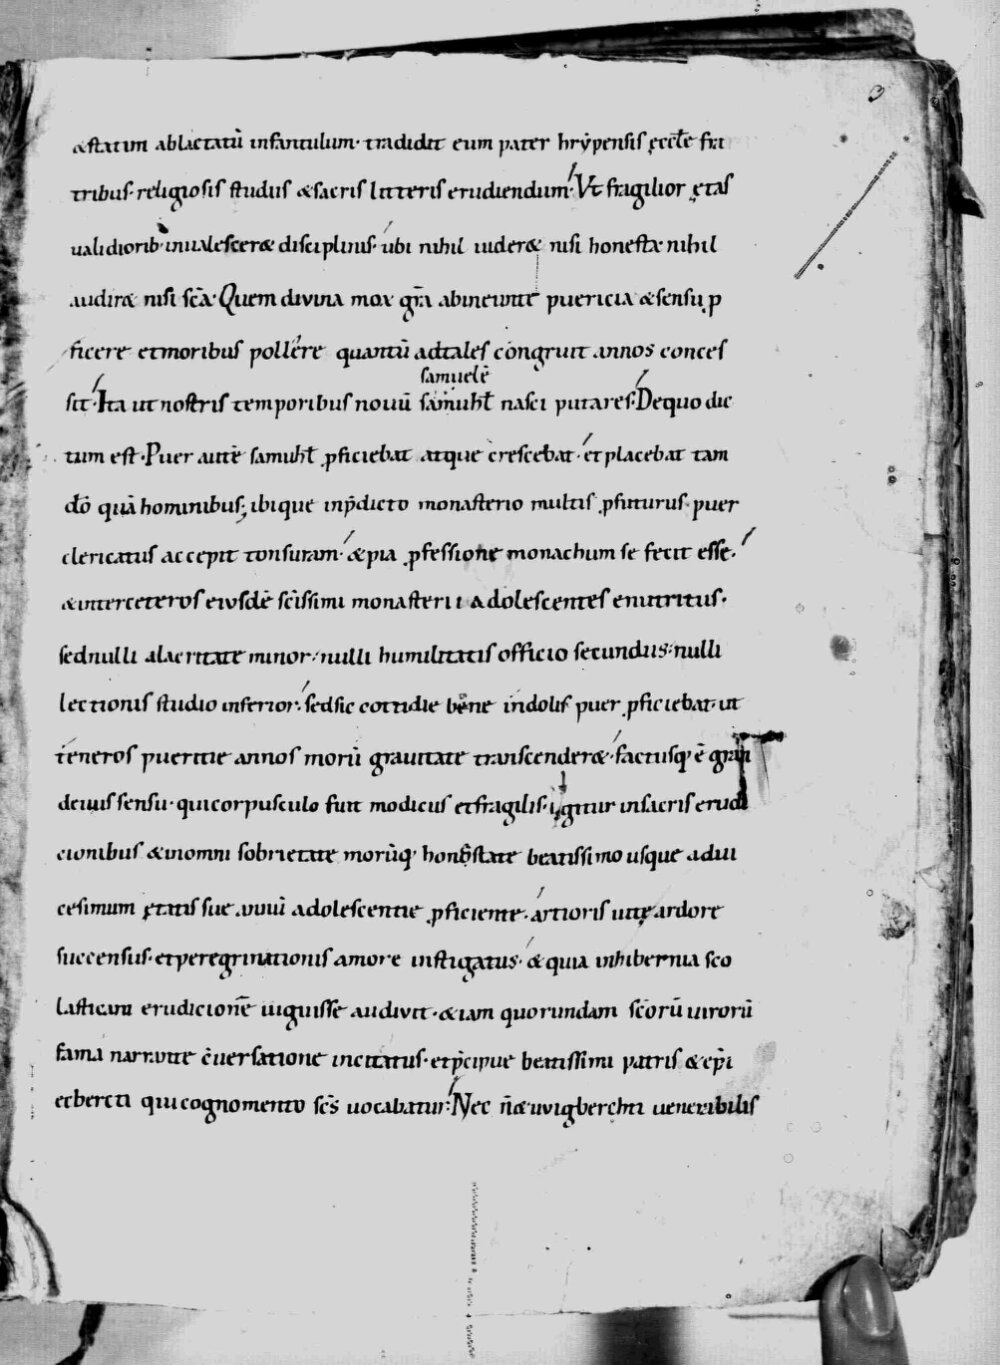 &statim ablactatū infantulum· tradidit eum pater hrẏpensis ęccłe fra
tribus· religiosis studiis &sacris litteris erudiendum· Vt fragilior ętas
ualidiorib· inualescer& disciplinis· ubi nihil uider& nisi honesta nihil
audir& nisi sc̄a· Quem divina mox gr̄a abineunte puericia &sensu p
ficere etmoribus pollere quantū adtales congruit annos conces
samuelē
sit· Ita ut nostris temporibus nouū samuhł nasci putares· Dequo dic
tum est· Puer autē samuhł ꝓficiebat atque crescebat· et placebat tam
dō quā hominibus; ibique inp̄dicto monasterio multis ꝓfuturus· puer
clericatus accepit tonsuram· &pia ꝓfessione monachum se fecit esse·
&interceteros eiusdē sc̄issimi monasterii adolescentes enutritus·
sednulli alacritate minor· nulli humilitatis officio secundus· nulli
lectionis studio inferior· sedsic cottidie bene indolis puer ꝓficiebat· ut
teneros pueritie annos morū grauitate transcender&· factusq· ē gran
deuus sensu· quicorpusculo fuit modicus etfragilis· igitur insacris erudi
cionibus &inomni sobrietate morūq· honestate beatissimo usque adui
cesimum ętatis sue adolescentie ꝓficiente· artioris uitę ardore
succensus· etperegrinationis amore instigatus· & quia inhibernia sco
lasticam erudicionē uiguisse audiuit· &iam quorundam sc̄orū uirorū
fama narrante c̄uersatione incitatus· etp̄cipue beatissimi patris & ep̄i
ecbercti qui cognomento sc̄s uocabatur: Nec n̄& uuigberchti uenerabilis